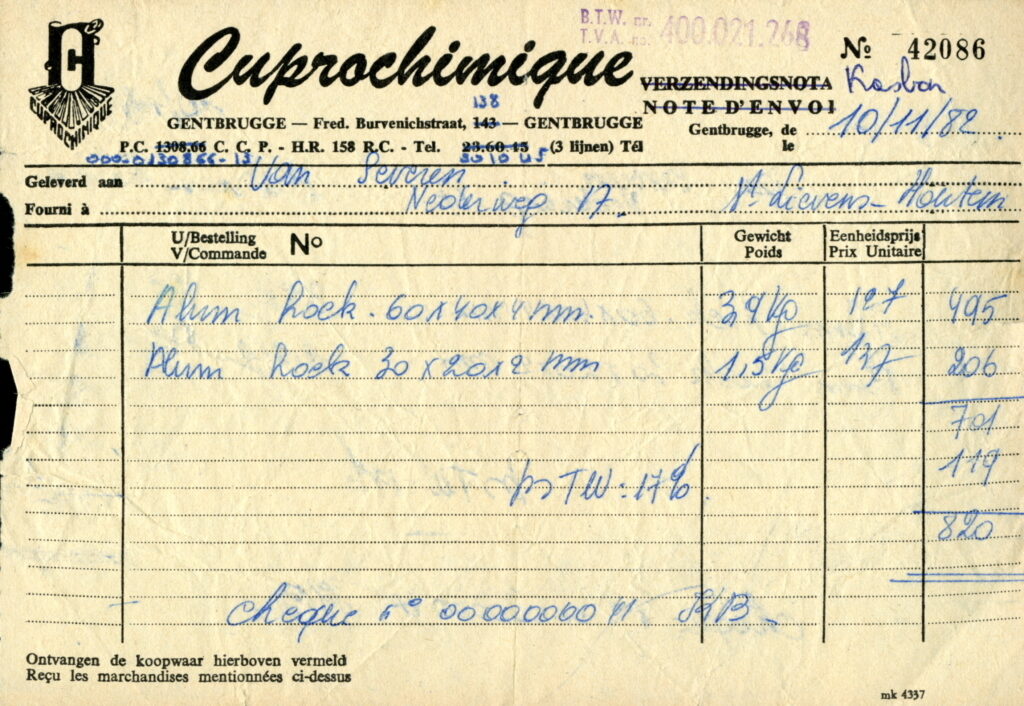 B.T.W. nr.
T.V.A. no. 400.021.268
CUPROCHIMIQUE
Cuprochimique
No 42086
VERZENDINGSNOTA Kasbon
NOTE D'ENVOI
138
GENTBRUGGE — Fred. Burvenichstraat, 143 — GENTBRUGGE
Gentbrugge, de le 10/11/82
P.C. 1308.66 C. C. P. - H.R. 158 R.C. - Tel. 23.60.15 (3 lijnen) Tél
000-0130866-13 30 10 45
Geleverd aan Van Severen
Fourni à Nederweg 17 St Lievens-Houtem
U/Bestelling V/Commande No Gewicht Poids Eenheidsprijs Prix Unitaire
Alum hoek. 60x40x4 mm. 3,9 kg 127 495
Alum hoek 30x20x2 mm 1,5 kg 137 206
701
119
BTW: 17%.
820
cheque n° 00000060 41 KB
Ontvangen de koopwaar hierboven vermeld
Reçu les marchandises mentionnées ci-dessus
mk 4337